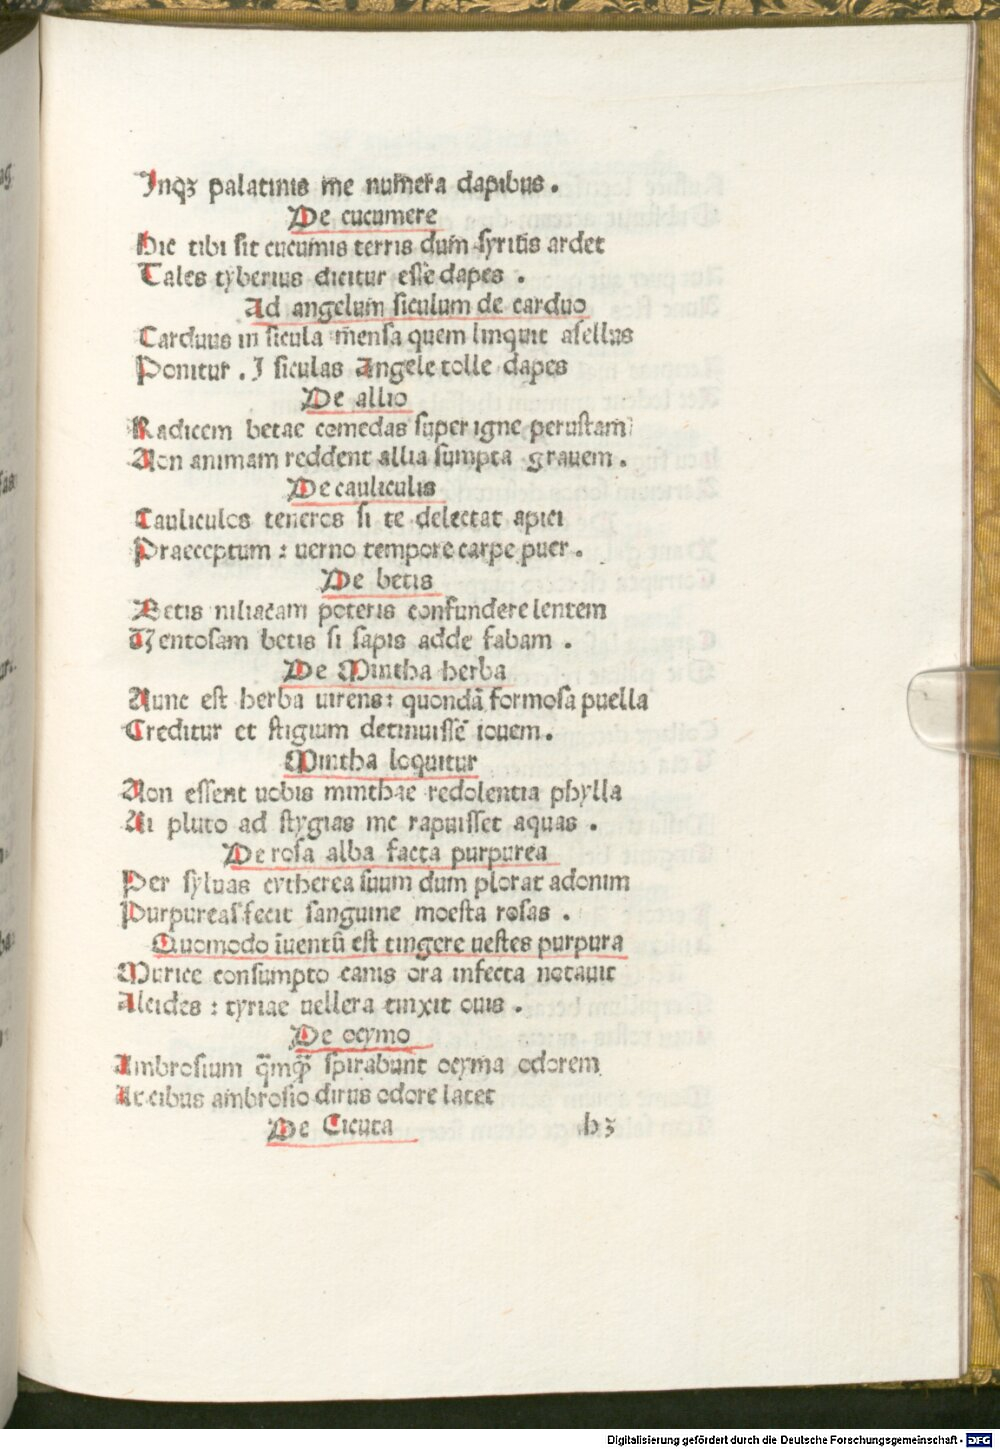 Inqꝫ palatinis me numera dapibus .
De cucumere
Hic tibi sit cucumis terris dum syrius ardet
Tales tyberius dicitur esse dapes .
Ad angelum siculum de carduo
Carduus in sicula mensa quem linquit asellus
Ponitur . I siculas Angele tolle dapes
De allio
Radicem betae comedas super igne perustam
Non animam reddent allia sumpta grauem .
De cauliculis
Cauliculos teneros si te delectat apici
Praeceptum : uerno tempore carpe puer .
De betis
Betis niliacam poteris confundere lentem
Ventosam betis si sapis adde fabam .
De Mintha herba
Nunc est herba uirens: quondā formosa puella
Creditur et stigium detinuisse iouem .
Mintha loquitur
Non essent uobis minthae redolentia phylla
Ni pluto ad stygias me rapuisset aquas .
De rosa alba facta purpurea
Per syluas cytherea suum dum plorat adonim
Purpureas fecit sanguine moesta rosas .
Quomodo īuentū est tingere uestes purpura
Murice consumpto canis ora infecta notauit
Alcides : tyriae uellera tinxit ouis .
De ocymo
Ambrosium q̄mq̄ spirabunt ocyma odorem
cibus ambrosio dirus odore latet
De Cicuta b3
Digitalisierung gefördert durch die Deutsche Forschungsgemeinschaft - DFG